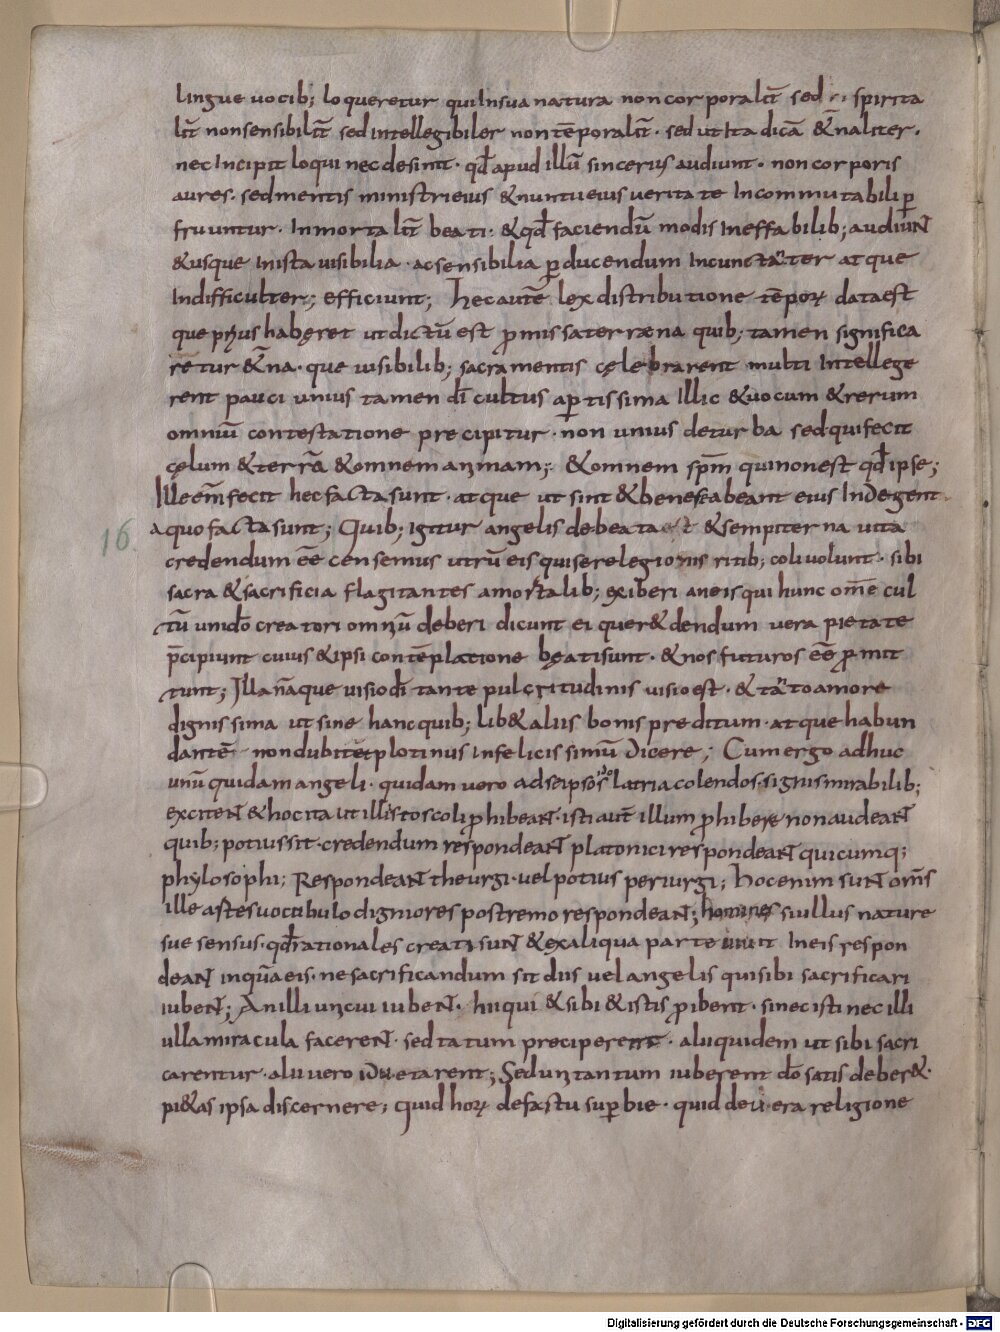 lingue uocib; loqueretur qui Insua natura non corporalit̄ sed spirita
lit̄ nonsensibilit̄ sed intellegibiliter non tēporalit̄. sed ut Ita dicā &̄naliter.
nec Incipit loqui nec desinit. qđ apud illū sincerius audiunt. non corporis
aures. sed mentis ministri eius & nuntii eius ueritate Incommutabili ꝑ
fruuntur. Inmortalit̄ beati. & qđ faciendū modis Ineffabilib; audiuNT
& usque Inista uisibilia. ac sensibilia ꝑducendum Incunctanter atque
Indifficulter; efficiunt; hec autē lex distributione tēporꝝ data est
que prius haberet ut dictū est ꝓmissa terrena quib; tamen significa
rētur &̄na. que uisibilib; sacramentis cęlebrarent multi Intellege
rent pauci unius tamen dī cultus aꝑtissima Illic & uocum & rerum
omniū contestatione precipitur. non unius de turba sed qui fecit
cęlum & terrā & omnem animam; & omnem spm̄ qui non est qđ ipse;
Ille em̄ fecit hec facta sunt. atque ut sint & bene se abeant eius Indegent
16. a quo facta sunt; Quib; igitur angelis de beata & sempiterna uita
credendum eē censemus utrū eis qui se relegionis ritib; coli uolunt. sibi
sacra & sacrificia flagitantes a mortalib; exiberi an eis qui hunc om̄e cul
tū uni dō creatori omniū deberi dicunt ei quer& dendum uera pietate
p̄cipiunt cuius & ipsi contēplatione beati sunt. & nos futuros eē ꝓmit
tunt; Illa nāque uisio dī tante pulcritudinis uisio est. & tanto amore
dignissima ut sine hanc quib; lib& aliis bonis preditum. atque habun
dantē non dubitet plotinus Infelicissimū dicere; Cum ergo ad huc
unū quidam angeli. quidam uero ad se ipsos latria colendos. signis mirabilib;
exciteNT & hoc ita ut illis tos coli ꝓhibeaNT. isti aut̄ illum ꝓhibere non audeaNT
quib; potius sit. credendum respondeaNT platonici respondeaNT quicumq;
phylosophi; RespondeaNT theurgi. uel potius periurgi; hoc enim suNT om̄s
ille astes uocabulo digniores postremo respondeaNT; homines si ullus nature
sue sensus. qđ rationales creati suNT & ex aliqua parte uiuit In eis respon
deaNT inquā eis. ne sacrificandum sit diis uel angelis qui sibi sacrificari
iubeNT; An illi uni cui iubeNT. hii qui & sibi & istis ꝓibent. si nec isti nec illi
ulla miracula facereNT. sed tatum preciperent. alii quidem ut sibi sacri
carentur. alii uero id uetarent; Sed uni tantum iuberent dō satis deber&.
pi&as ipsa discernere; quid horꝝ de fastu suꝑbie. quid de uera religione